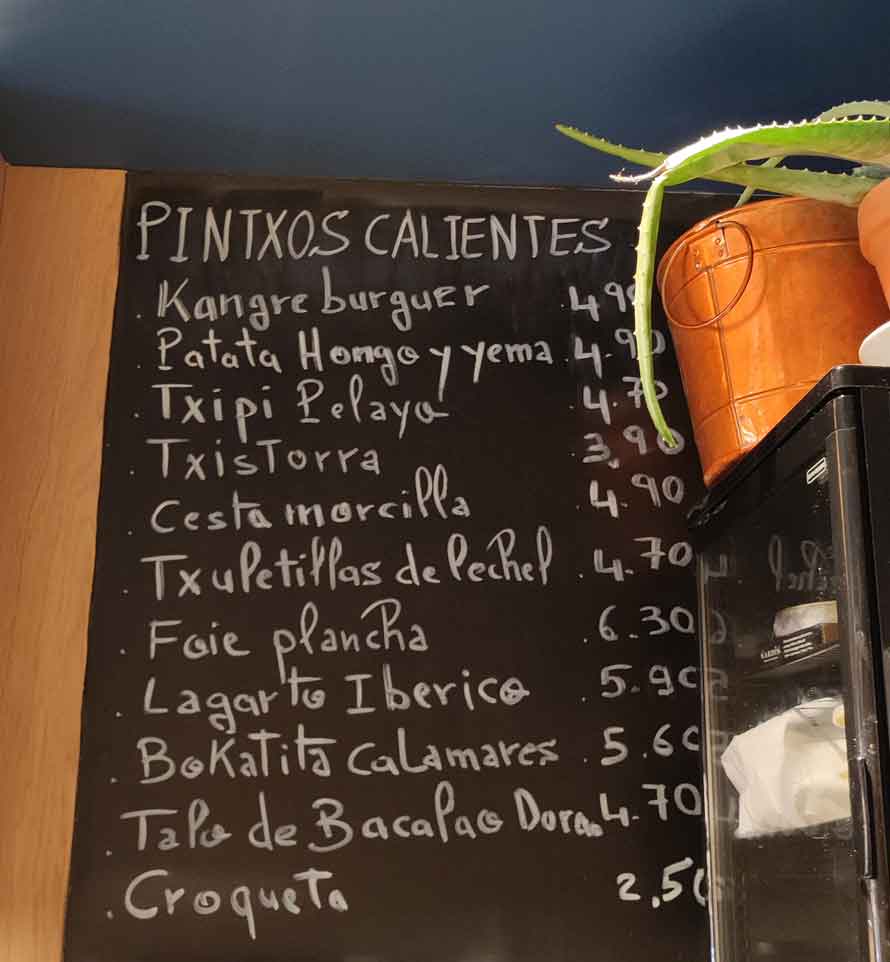 PINTXOS CALIENTES
. Kangreburguer .4.90
. Patata Hongo y yema .4.90
. Txipi Pelayo .4.70
. TxisTorra .3.90
. Cesta morcilla .4.90
. Txuletillas de lechel .4.70
. Foie plancha .6.30
. Lagarto Iberico .5.90
. BoKaTiTa calamares .5.60
. Talo de Bacalao Dora. 4.70
. CroqueTa 2,50